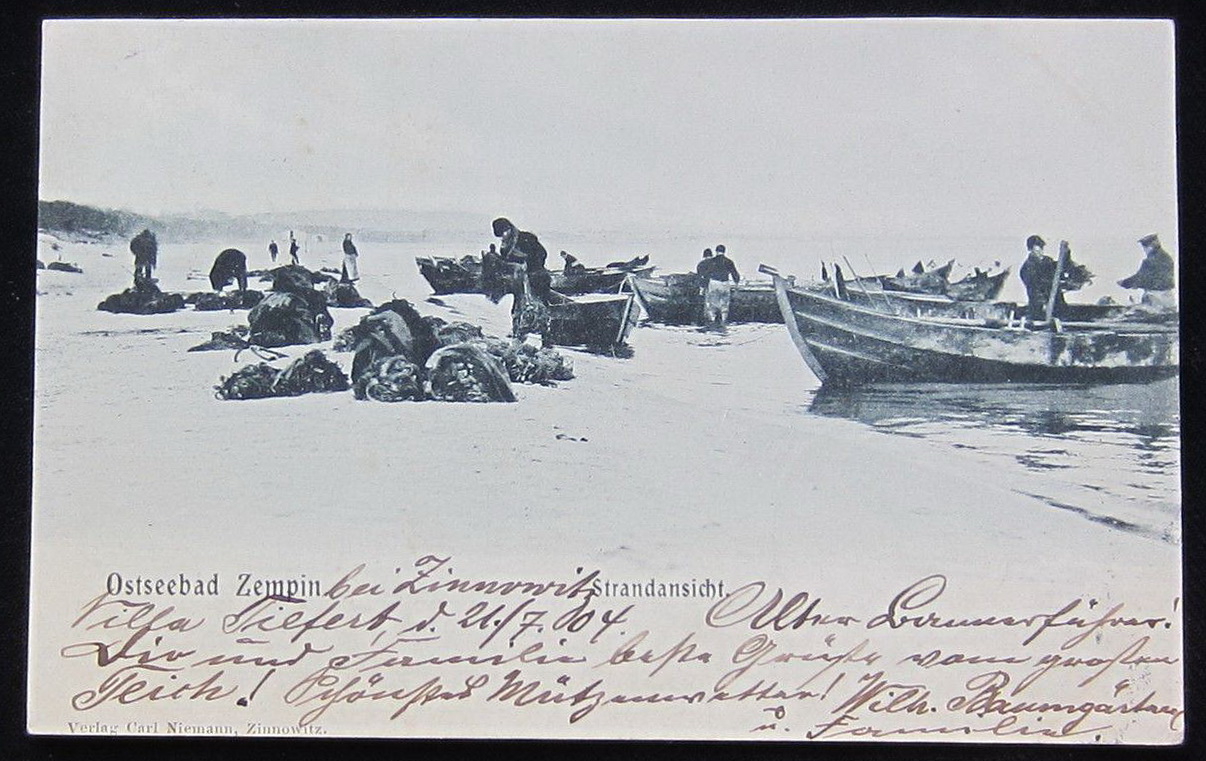 Ostseebad Zempin bei Zinnowitz Strandansicht.
Villa Tiefert, d. 21./7.04. Alter Bannerführer!
Dir und Familie beste Grüße vom großen
Teich! Schönstes Mützenwetter! Wilh. Baumgärtner
u. Familie.
Verlag Carl Niemann, Zinnowitz.